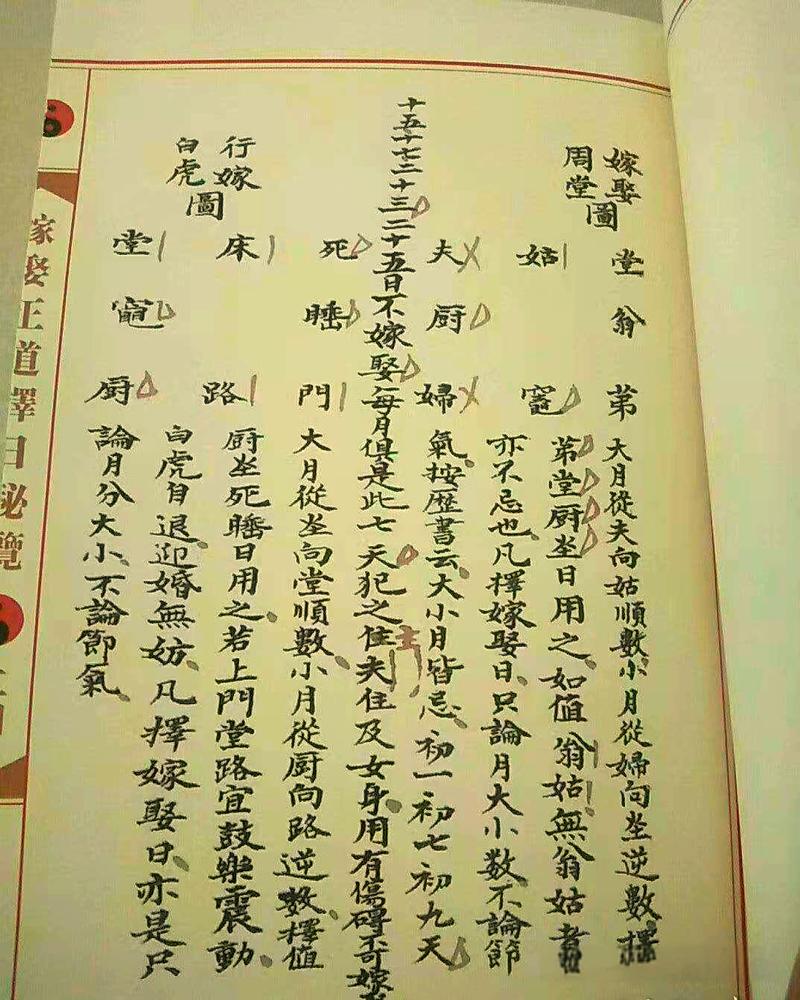 嫁娶
周堂
圖
堂 翁 第
姑 竈
夫 厨 婦
大月從夫向姑順數小月從婦向灶逆數擇
第堂厨灶日用之如值翁姑無翁姑者
亦不忌也凡擇嫁娶日只論月大小數不論節
氣按歷書云大小月皆忌初一初七初九天
十五十七二十三二十五日不嫁娶每月俱是此七天犯之住夫住及女身用有傷碍不可嫁
主
行嫁
白虎
圖
死 睡 門
床 路
堂 竈 厨
大月從灶向堂順數小月從厨向路逆數擇值
厨灶死睡日用之若上門堂路宜鼓樂震動
白虎自退迎婚無妨凡擇嫁娶日亦是只
論月分大小不論節氣
嫁娶王道擇日秘覽